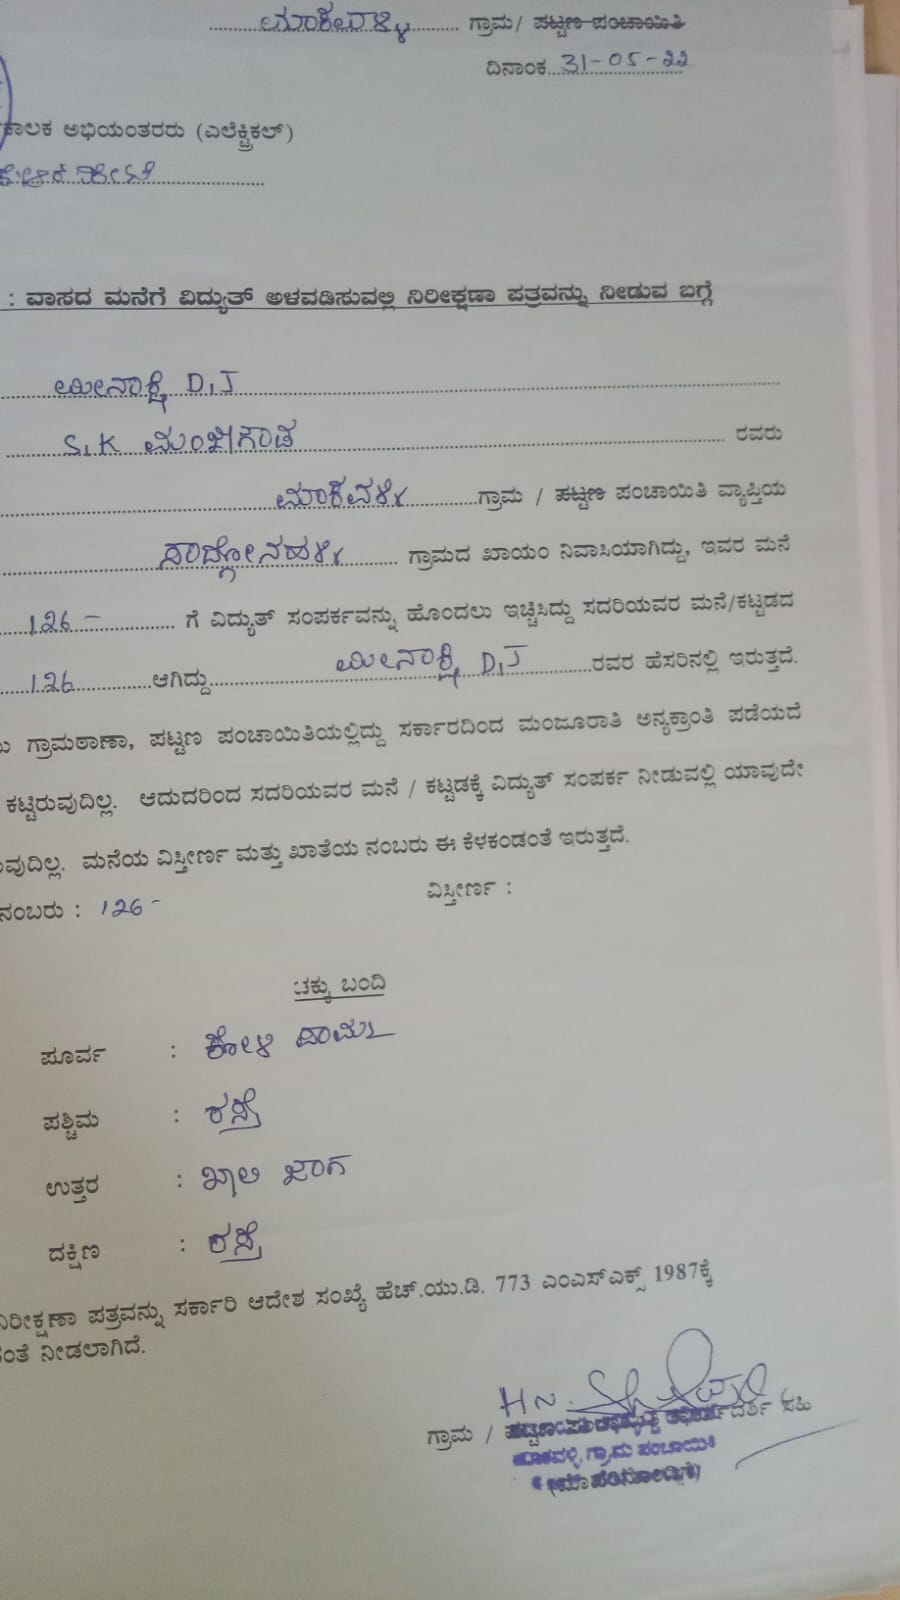 ಮಾಕವಳ್ಳಿ ಗ್ರಾಮ/ ಪಟ್ಟಣ ಪಂಚಾಯಿತಿ
ದಿನಾಂಕ 31-05-22
ಅಭಿಯಂತರರು (ಎಲೆಕ್ಟ್ರಿಕಲ್)
: ವಾಸದ ಮನೆಗೆ ವಿದ್ಯುತ್ ಅಳವಡಿಸುವಲ್ಲಿ ನಿರೀಕ್ಷಣಾ ಪತ್ರವನ್ನು ನೀಡುವ ಬಗ್ಗೆ
ಮೀನಾಕ್ಷಿ D.J
S.K ಮಂಜೇಗೌಡ ರವರು
ಮಾಕವಳ್ಳಿ ಗ್ರಾಮ / ಪಟ್ಟಣ ಪಂಚಾಯಿತಿ ವ್ಯಾಪ್ತಿಯ
ಗ್ರಾಮದ ಖಾಯಂ ನಿವಾಸಿಯಾಗಿದ್ದು, ಇವರ ಮನೆ
126 - ಗೆ ವಿದ್ಯುತ್ ಸಂಪರ್ಕವನ್ನು ಹೊಂದಲು ಇಚ್ಚಿಸಿದ್ದು ಸದರಿಯವರ ಮನೆ/ಕಟ್ಟಡದ
126 ಆಗಿದ್ದು ಮೀನಾಕ್ಷಿ D.J ರವರ ಹೆಸರಿನಲ್ಲಿ ಇರುತ್ತದೆ.
ಗ್ರಾಮಠಾಣಾ, ಪಟ್ಟಣ ಪಂಚಾಯಿತಿಯಲ್ಲಿದ್ದು ಸರ್ಕಾರದಿಂದ ಮಂಜೂರಾತಿ ಅನ್ಯಕ್ರಾಂತಿ ಪಡೆಯದೆ
ಕಟ್ಟಿರುವುದಿಲ್ಲ. ಆದುದರಿಂದ ಸದರಿಯವರ ಮನೆ / ಕಟ್ಟಡಕ್ಕೆ ವಿದ್ಯುತ್ ಸಂಪರ್ಕ ನೀಡುವಲ್ಲಿ ಯಾವುದೇ
ಮನೆಯ ವಿಸ್ತೀರ್ಣ ಮತ್ತು ಖಾತೆಯ ನಂಬರು ಈ ಕೆಳಕಂಡಂತೆ ಇರುತ್ತದೆ.
ನಂಬರು : 126 - ವಿಸ್ತೀರ್ಣ :
ಚಕ್ಕು ಬಂದಿ
ಪೂರ್ವ : ಕೋಳಿ ಫಾರಂ
ಪಶ್ಚಿಮ : ರಸ್ತೆ
ಉತ್ತರ : ಖಾಲಿ ಜಾಗ
ದಕ್ಷಿಣ : ರಸ್ತೆ
ನಿರೀಕ್ಷಣಾ ಪತ್ರವನ್ನು ಸರ್ಕಾರಿ ಆದೇಶ ಸಂಖ್ಯೆ ಹೆಚ್.ಯು.ಡಿ. 773 ಎಂಎಸ್ಎಕ್ಸ್ 1987ಕ್ಕೆ
ನೀಡಲಾಗಿದೆ.
ಗ್ರಾಮ / ಸಹಿ
ಮಾಕವಳ್ಳಿ ಗ್ರಾಮ ಪಂಚಾಯಿತಿ